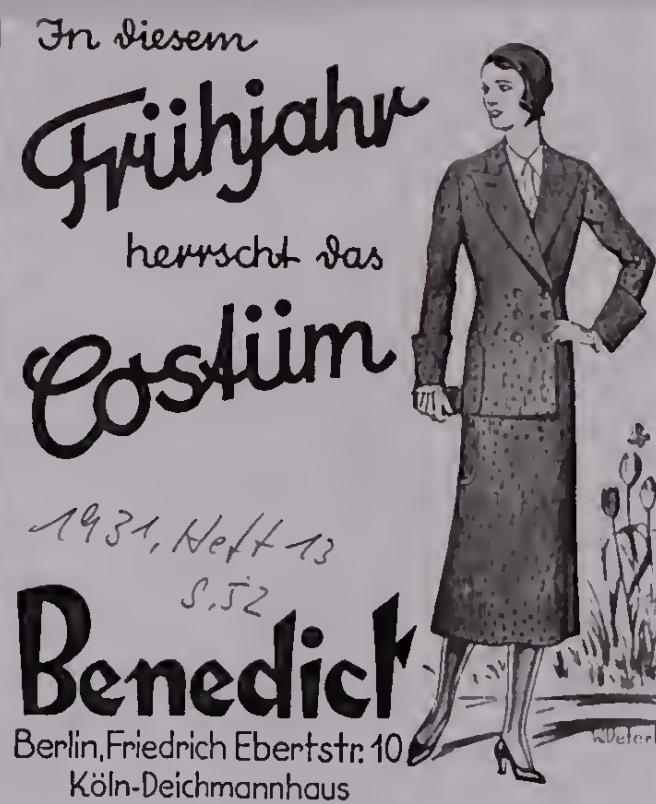 In diesem
Frühjahr
herrscht das
Costüm
1931, Heft 13
S. 52
Benedict
Berlin, Friedrich Ebertstr. 10
Köln-Deichmannhaus